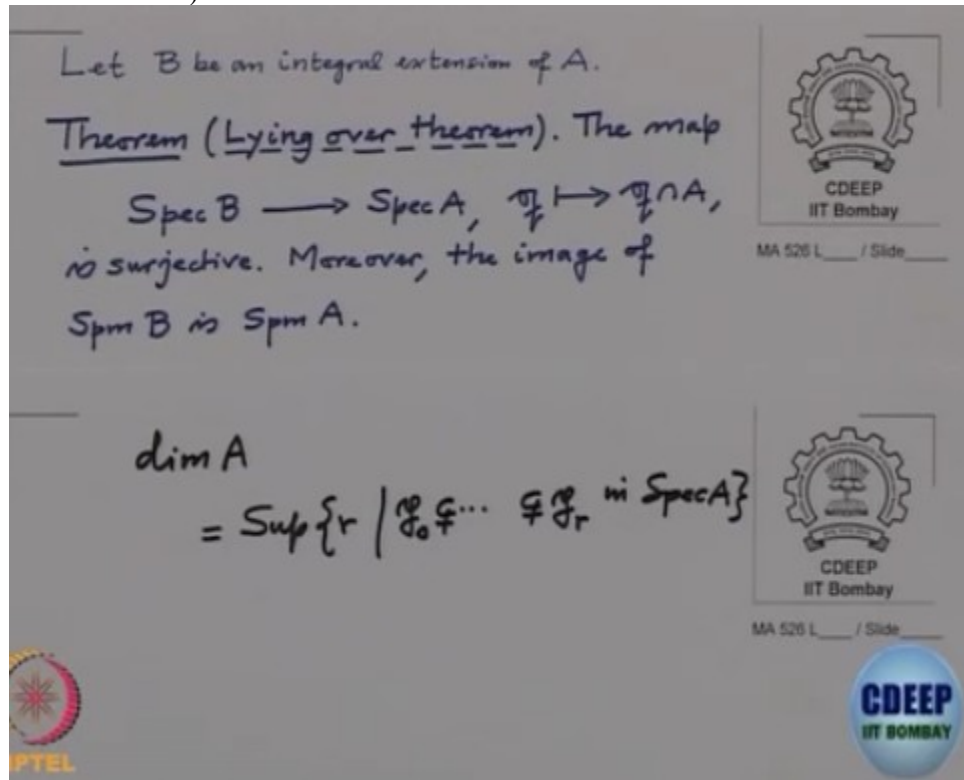 Let B be an integral extension of A.
Theorem (Lying over theorem). The map
Spec B ⟶ Spec A, 𝔮 ⟼ 𝔮 ∩ A,
is surjective. Moreover, the image of
Spm B is Spm A.
CDEEP
IIT Bombay
MA 526 L___ / Slide___
dim A
= Sup{r | 𝔭₀ ⊊ ··· ⊊ 𝔭ᵣ in Spec A}
CDEEP
IIT Bombay
MA 526 L___ / Slide___
PTEL
CDEEP
IIT BOMBAY